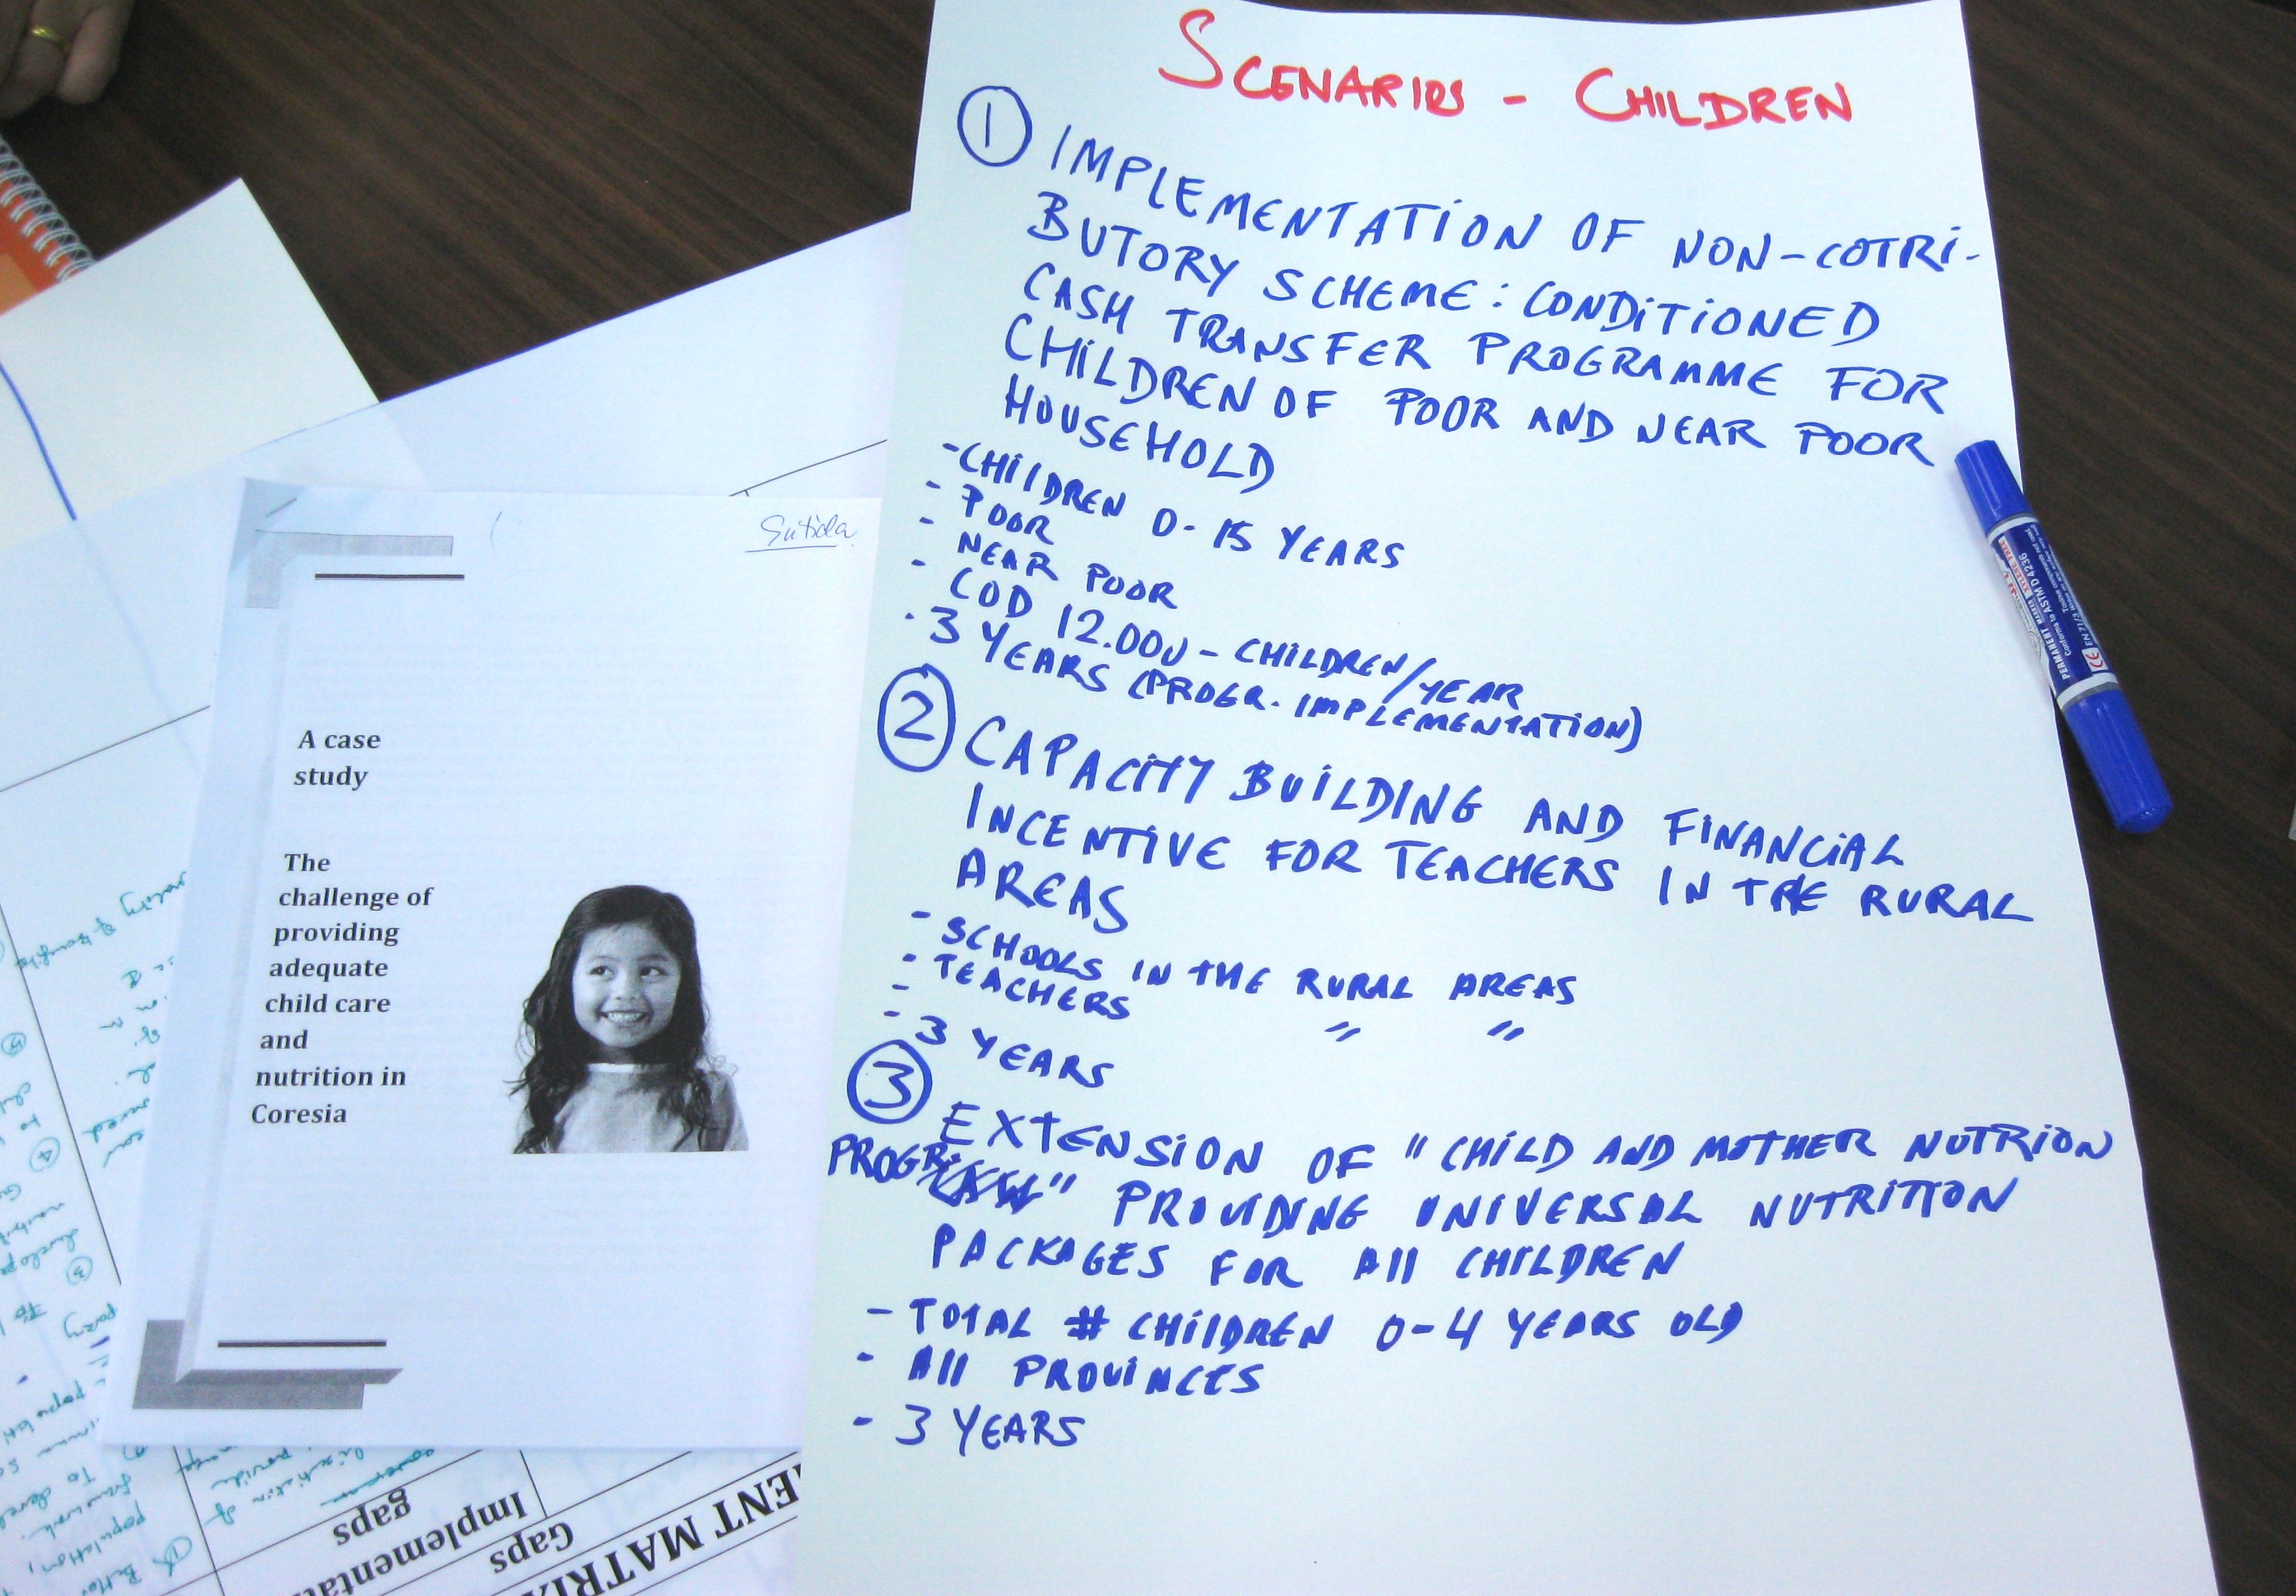 SCENARIOS - CHILDREN
① IMPLEMENTATION OF NON-COTRI-
BUTORY SCHEME: CONDITIONED
CASH TRANSFER PROGRAMME FOR
CHILDREN OF POOR AND NEAR POOR
HOUSEHOLD
- CHILDREN 0-15 YEARS
- POOR
- NEAR POOR
- COD 12.000 - CHILDREN/YEAR
- 3 YEARS (PROGR. IMPLEMENTATION)
② CAPACITY BUILDING AND FINANCIAL
INCENTIVE FOR TEACHERS IN THE RURAL
AREAS
- SCHOOLS IN THE RURAL AREAS
- TEACHERS " "
-
- 3 YEARS
③ EXTENSION OF "CHILD AND MOTHER NUTRION
PROGR." PROVIDING UNIVERSAL NUTRITION
PACKAGES FOR All CHILDREN
- TOTAL # CHILDREN 0-4 YEARS OLD
- All PROVINCES
- 3 YEARS
Sutida
A case
study
The
challenge of
providing
adequate
child care
and
nutrition in
Coresia
PERMANENT MARKER
Conforms to ASTM D 4236
EN 71/3
ENT MATRI
Gaps
Implementa
gaps